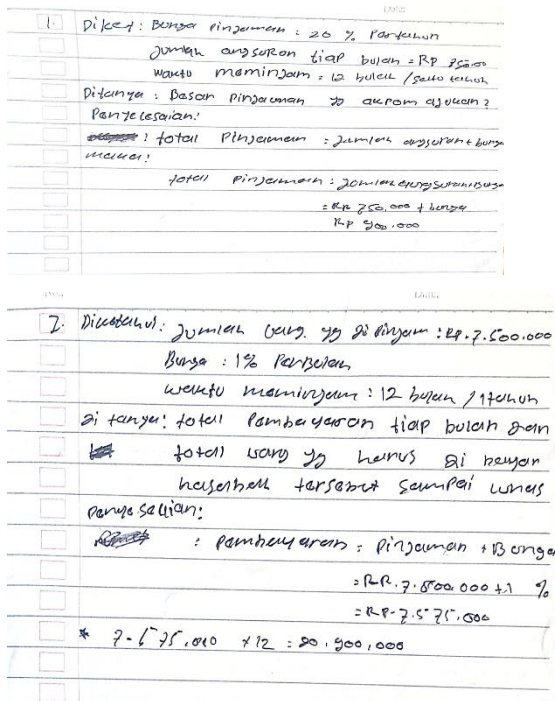 1. Diket : Bunga pinjaman : 20 % Pertahun
Jumlah angsuran tiap bulan = Rp
waktu meminjam : 12 bulan / satu tahun
Ditanya : Besar Pinjaman yg akan ajukan ?
Penyelesaian :
: total Pinjaman : Jumlah angsuran + bunga
maka :
total pinjaman : jumlah angsuran + Bunga
= Rp 750.000 + bunga
Rp 900.000
2. Diketahui : Jumlah uang yg di pinjam : Rp. 7.500.000
Bunga : 1% Perbulan
waktu meminjam : 12 bulan / 1 tahun
di tanya : total Pembayaran tiap bulan dan
total uang yg harus di bayar
tersebut sampai lunas
penyesaiian :
: pembayaran : Pinjaman + Bunga
= Rp. 7.500.000 + 1 %
= Rp. 7.575.000
* 7.575.000 x 12 : 90.900.000